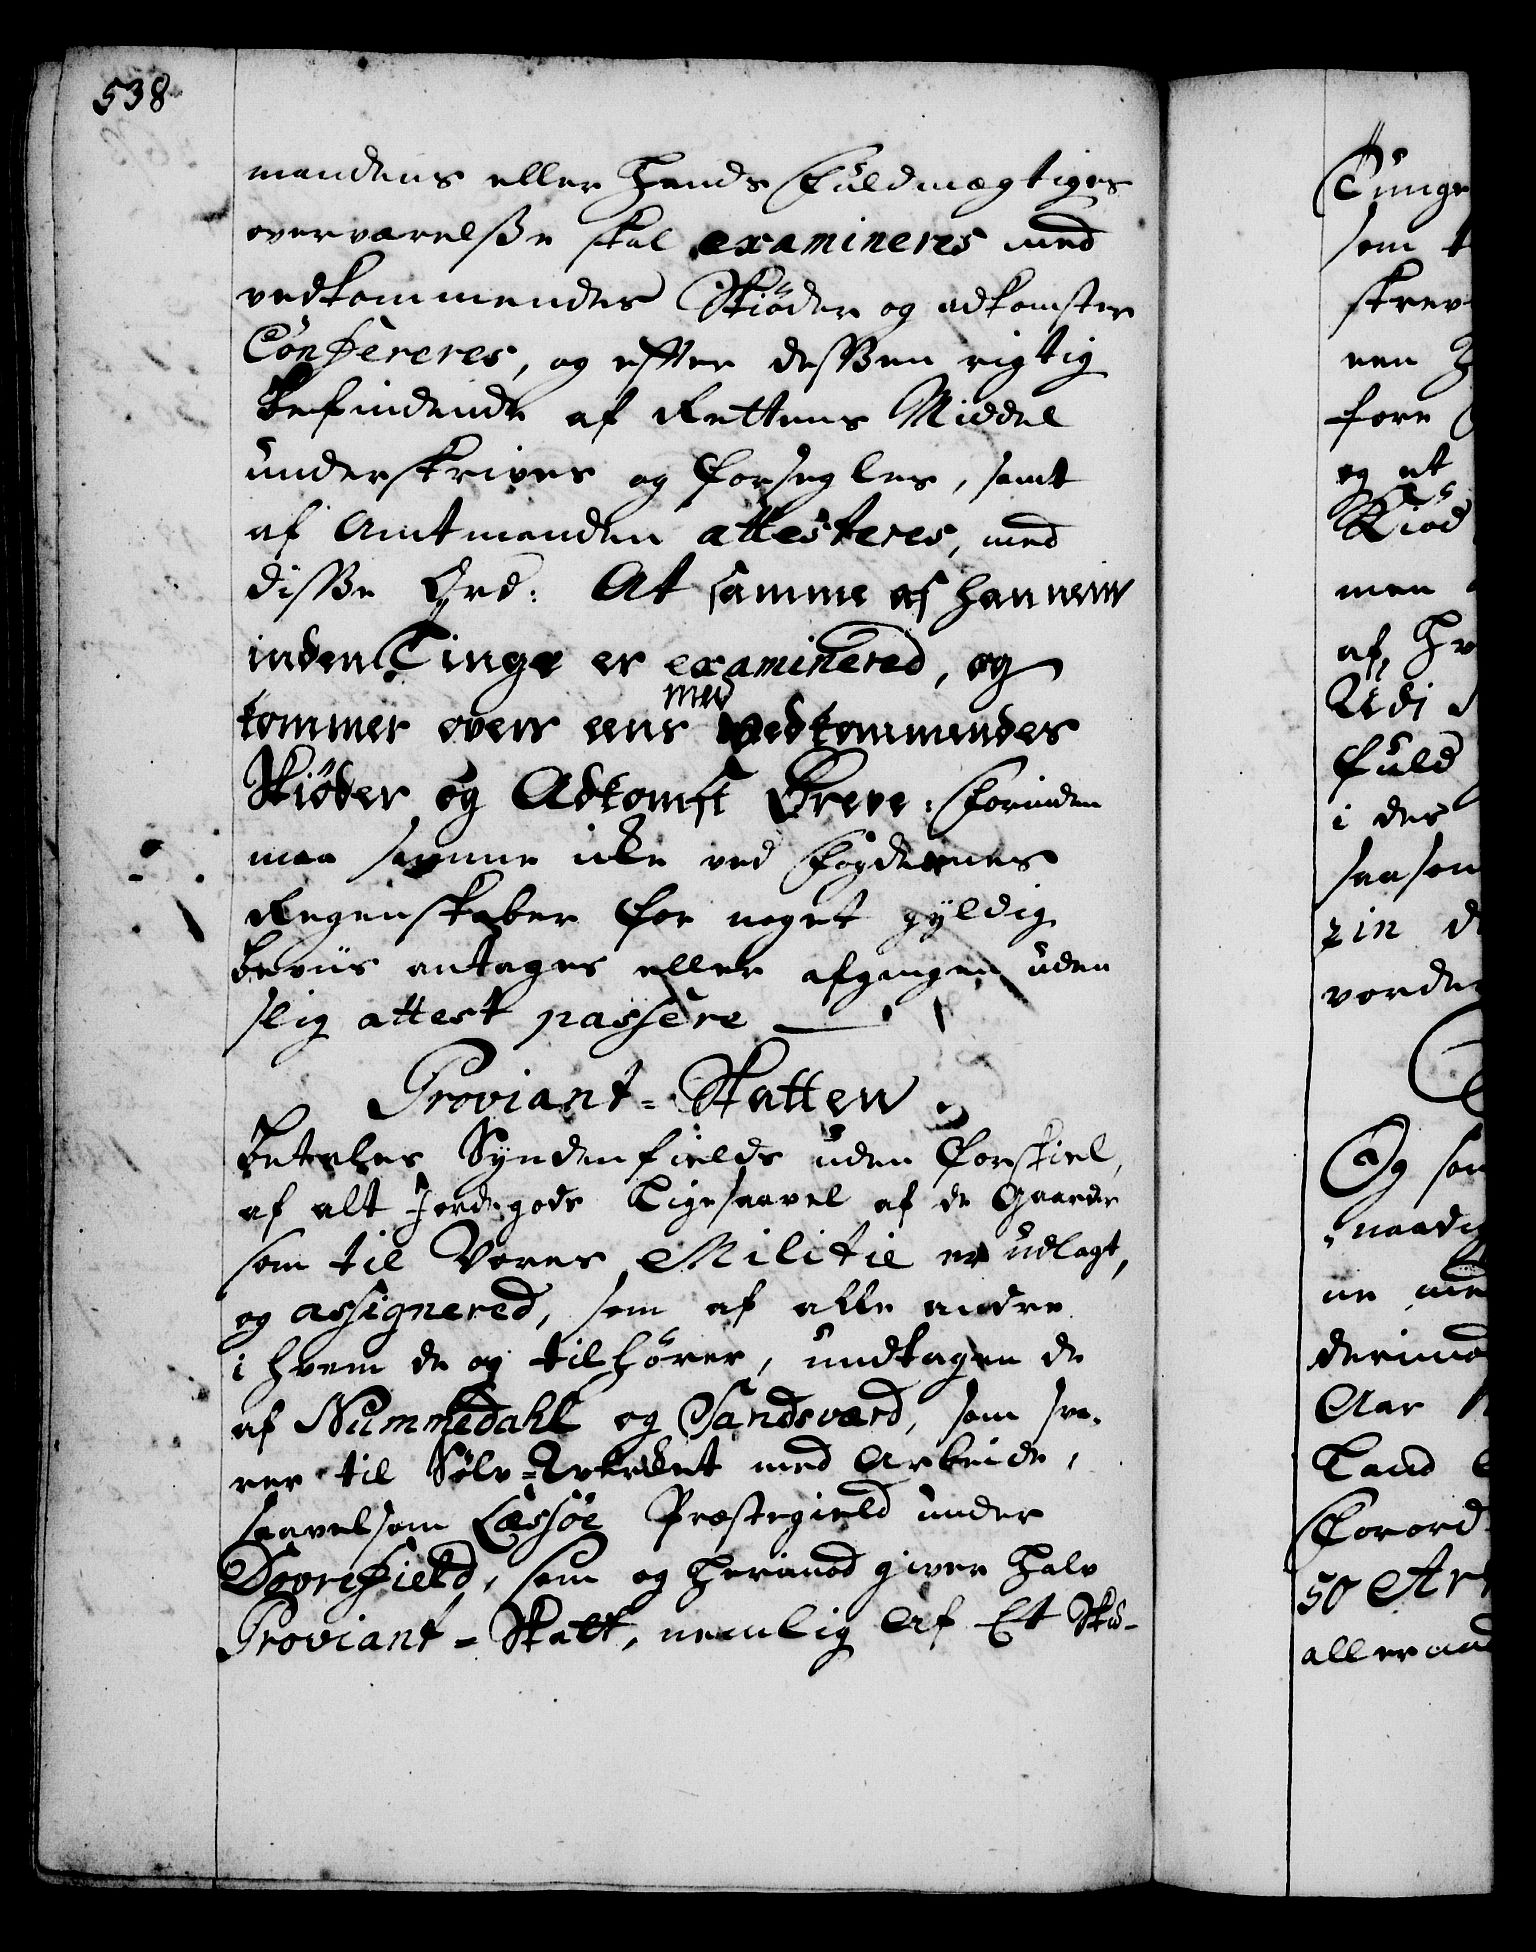 538
mandens eller hands fuldmægtiges
overværelsße skal examineres med
vedkommendes Skiøder og adkomster
Confereres, og efter desßen rigtig
befindende af Rettens Middel
underskrives og forsegles, samt
af Amtmanden attesteres, med
disße Ord: At samme af hannem
inden Tinge er examinered, og
kommer overr eens med vedkommendes
Skiøder og Adkomst Breve: forinden
maa samme icke ved fogdernes
Regenskaber for noget gyldig
beviis antages eller afgangen uden
slig attest passere
Proviant-Skatten
Betahles Syndenfields uden forskiel,
af alt Jordegods ligesaavel af de Gaarde
som til Vores Militie er udlagt,
og assignered, som af alle andre
i hvem de og tilhører, undtagen de
af Nummedahl og Sandsværd, som sva-
rer til Sølv-Verket med Arbeide,
saavelsom Læssøe Præstegield under
Dovrefield, som og herimod giver halv
Proviant-Skatt, nemlig Af Et Ski-
Tunge
som t
skrev
een
fore
og at
Skiød
men
af
Udi
fuld
i des
saasom
zin d
vorde
Og som
naadig
ne
derimod
Aar
Land
Forord
50 Ar
allernaad